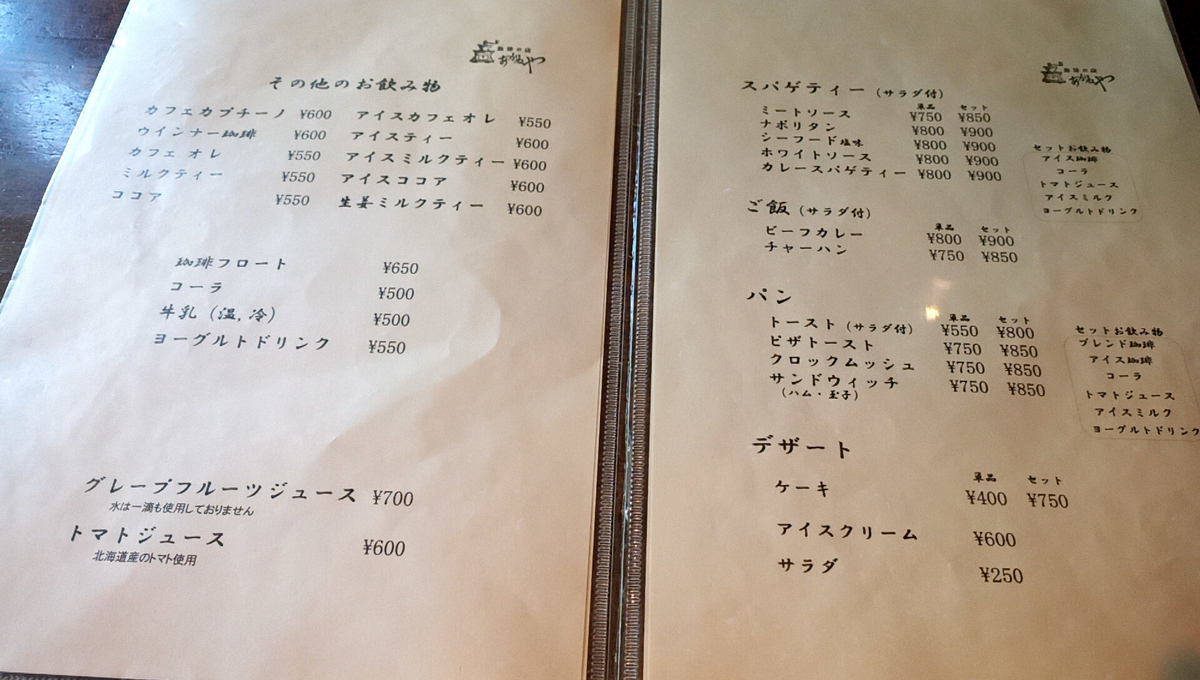 珈琲の店
あかねやつ
その他のお飲み物
カフェカプチーノ ¥600 アイスカフェオレ ¥550
ウインナー珈琲 ¥600 アイスティー ¥600
カフェ オレ ¥550 アイスミルクティー ¥600
ミルクティー ¥550 アイスココア ¥600
ココア ¥550 生姜ミルクティー ¥600
珈琲フロート ¥650
コーラ ¥500
牛乳（温,冷） ¥500
ヨーグルトドリンク ¥550
グレープフルーツジュース ¥700
水は一滴も使用しておりません
トマトジュース ¥600
北海道産のトマト使用
珈琲の店
スパゲティー（サラダ付）
単品 セット
ミートソース ¥750 ¥850
ナポリタン ¥800 ¥900
シーフード塩味 ¥800 ¥900
ホワイトソース ¥800 ¥900
カレースパゲティー ¥800 ¥900
セットお飲み物
アイス珈琲
コーラ
トマトジュース
アイスミルク
ヨーグルトドリンク
ご飯（サラダ付）
単品 セット
ビーフカレー ¥800 ¥900
チャーハン ¥750 ¥850
パン
単品 セット
トースト（サラダ付） ¥550 ¥800
ピザトースト ¥750 ¥850
クロックムッシュ ¥750 ¥850
サンドウィッチ ¥750 ¥850
（ハム・玉子）
セットお飲み物
ブレンド珈琲
アイス珈琲
コーラ
トマトジュース
アイスミルク
ヨーグルトドリンク
デザート
単品 セット
ケーキ ¥400 ¥750
アイスクリーム ¥600
サラダ ¥250